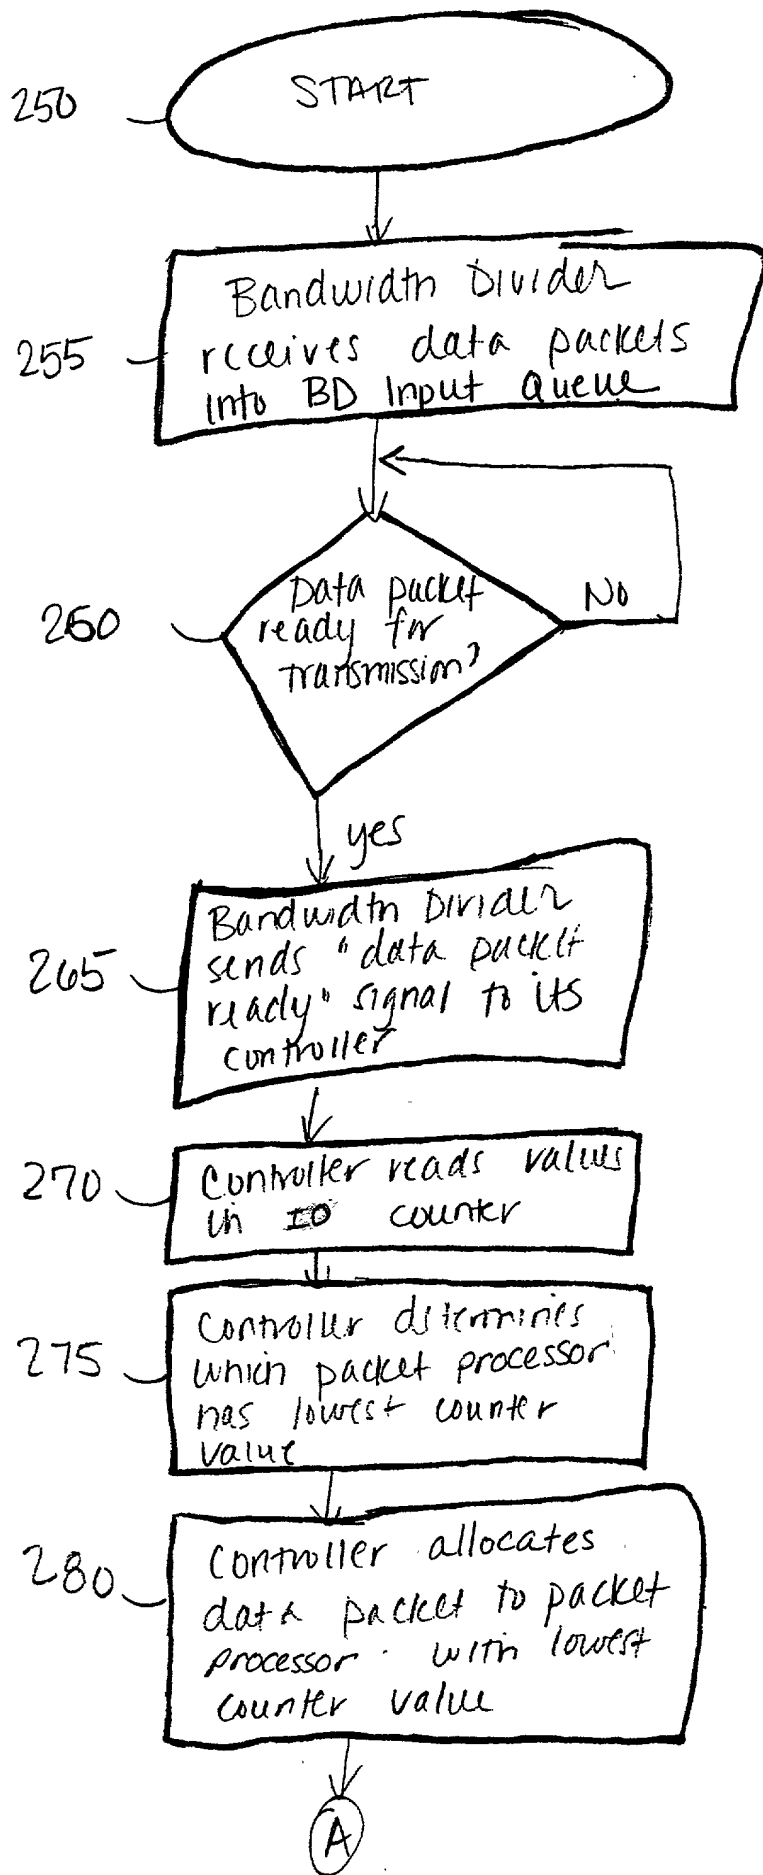 250
START
255
Bandwidth Divider
receives data packets
into BD Input Queue
260
Data packet
ready for
transmission?
No
yes
265
Bandwidth Divider
sends "data packet
ready" signal to its
controller
270
Controller reads values
in IO counter
275
Controller determines
which packet processor
has lowest counter
value
280
Controller allocates
data packet to packet
processor with lowest
counter value
A